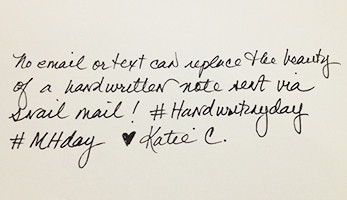 No email or text can replace the beauty
of a handwritten note sent via
snail mail! #Handwritingday
#MHday ♥ Katie C.